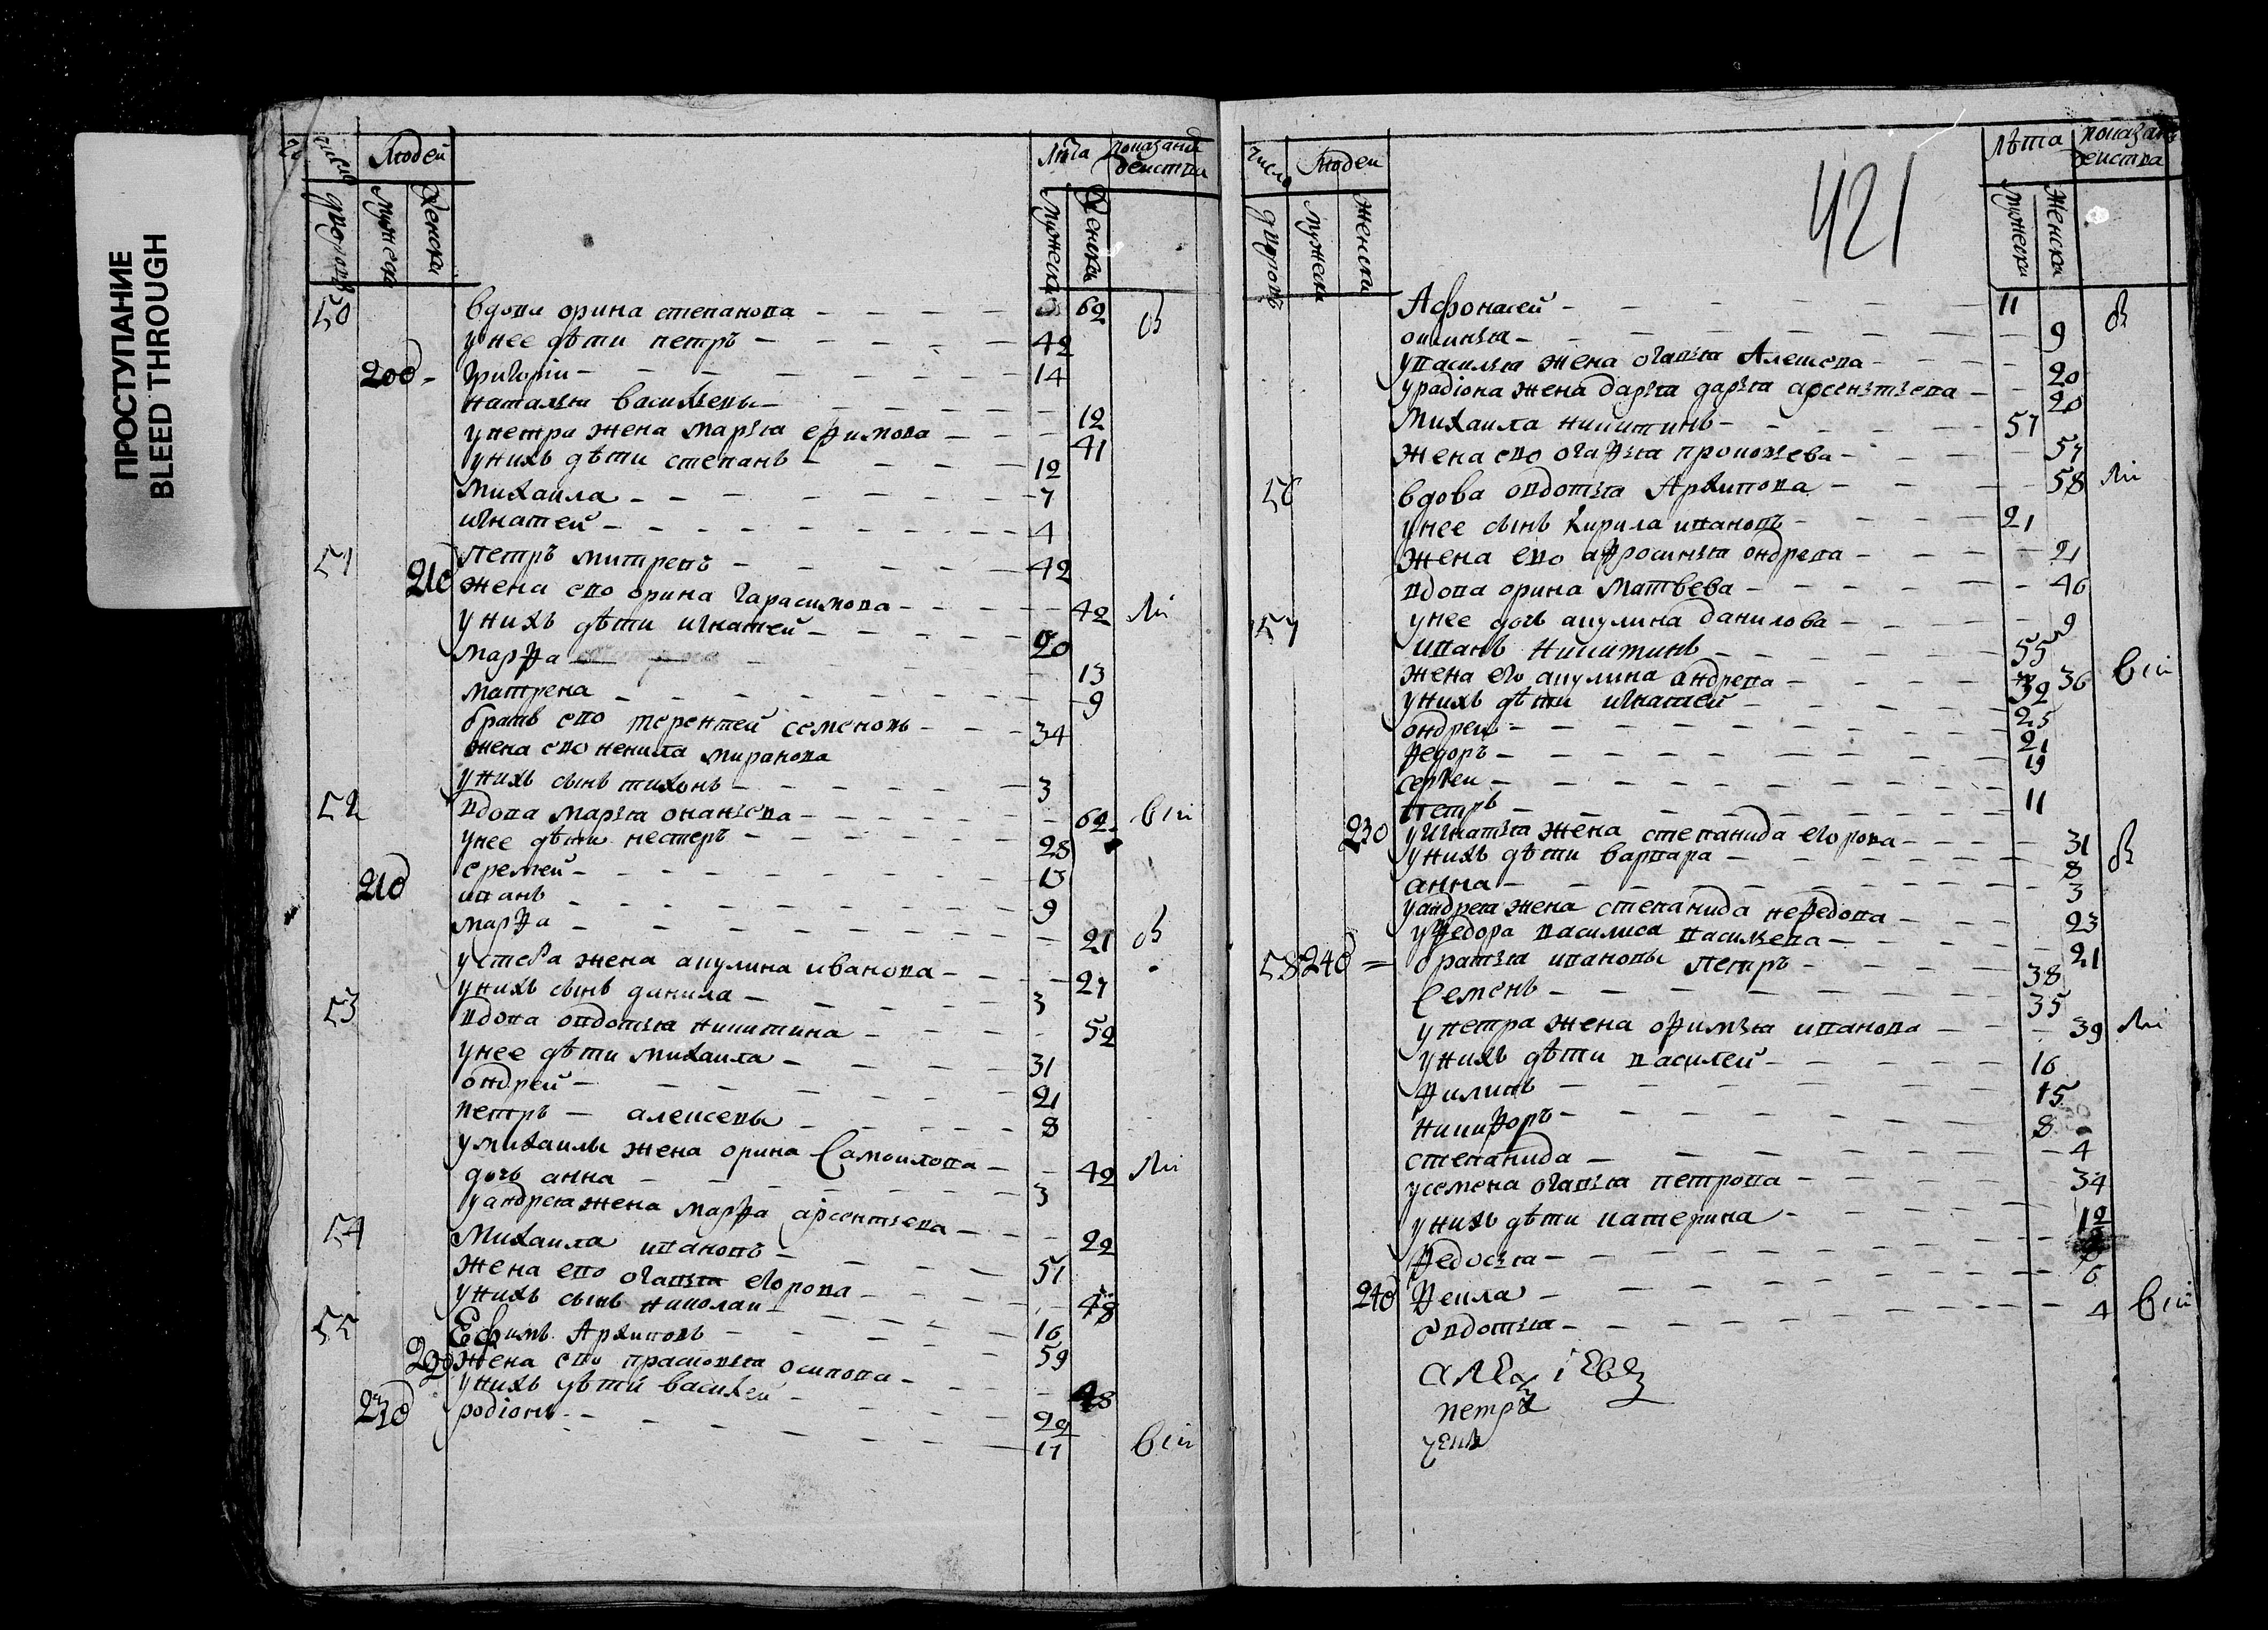 ПРОСТУПАНИЕ
BLEED THROUGH
число людей лѣта показани действи
дворовъ мужеска женски мужеска женски
50 вдова орина степанова 62
у нее дѣти петръ 42
200 григории 14
наталья васильевы 12
у петра жена марья ефимова 41
у нихъ дѣти степанъ 12
михаила 7
игнатей 4
51 петръ митревъ 42
210 жена ево орина гарасимова 42
у нихъ дѣти игнатей 20
марфа 13
матрена 9
братъ ево терентей семеновъ 34
жена ево ненила миранова
у нихъ сынъ тихонъ 3
52 вдова марья онаньева 62
у нее дѣти нестеръ 28
еремей 13
210 иванъ 9
марфа 21
жена акулина иванова 27
у нихъ сынъ данила 3
53 вдова овдотья никитина 52
у нее дѣти михаила 31
ондрей 21
петръ алексевы 8
у михаилы жена орина самоилова 42
дочь анна 3
у андрея жена марфа арсентьева 22
54 михаила ивановъ 51
жена ево огавья егорова 48
у нихъ сынъ николаи 16
55 Ефимъ Архиповъ 59
220 жена ево прасковья осипова 48
у нихъ дѣти василей 22
родионъ 17
421
число людеи лѣта показани действа
дворовъ мужеска женски мужеска женски
Афонасей 11
оксинья 9
у василья жена огавья Алексева 20
у радіона жена дарья дарья арсентьева 20
михаила никитинъ 57
жена ево огафья прокофева 57
56 вдова овдотья Архипова 58
у нее сынъ кирила ивановъ 21
жена ево афросинья ондрева 21
вдова орина матвева 46
у нее дочь акулина данилова 9
57 иванъ никитинъ 55
жена его акулина андрева 36
у нихъ дѣти игнатей 32
ондрей 25
федоръ 21
сергеи 19
петръ 11
230 у игнатья жена степанида егорова 31
у нихъ дѣти варвара 8
анна 3
у андрея жена степанида нефедова 23
у федора василиса васильева 21
58 240 братья ивановы петръ 38
семенъ 35
у петра жена офимья иванова 39
у нихъ дѣти василей 16
филипъ 15
никифоръ 8
степанида 4
у семена огавья петрова 34
у нихъ дѣти катерина 12
федосья
240 фекла 6
овдотья 4
алеѯіевъ
петръ